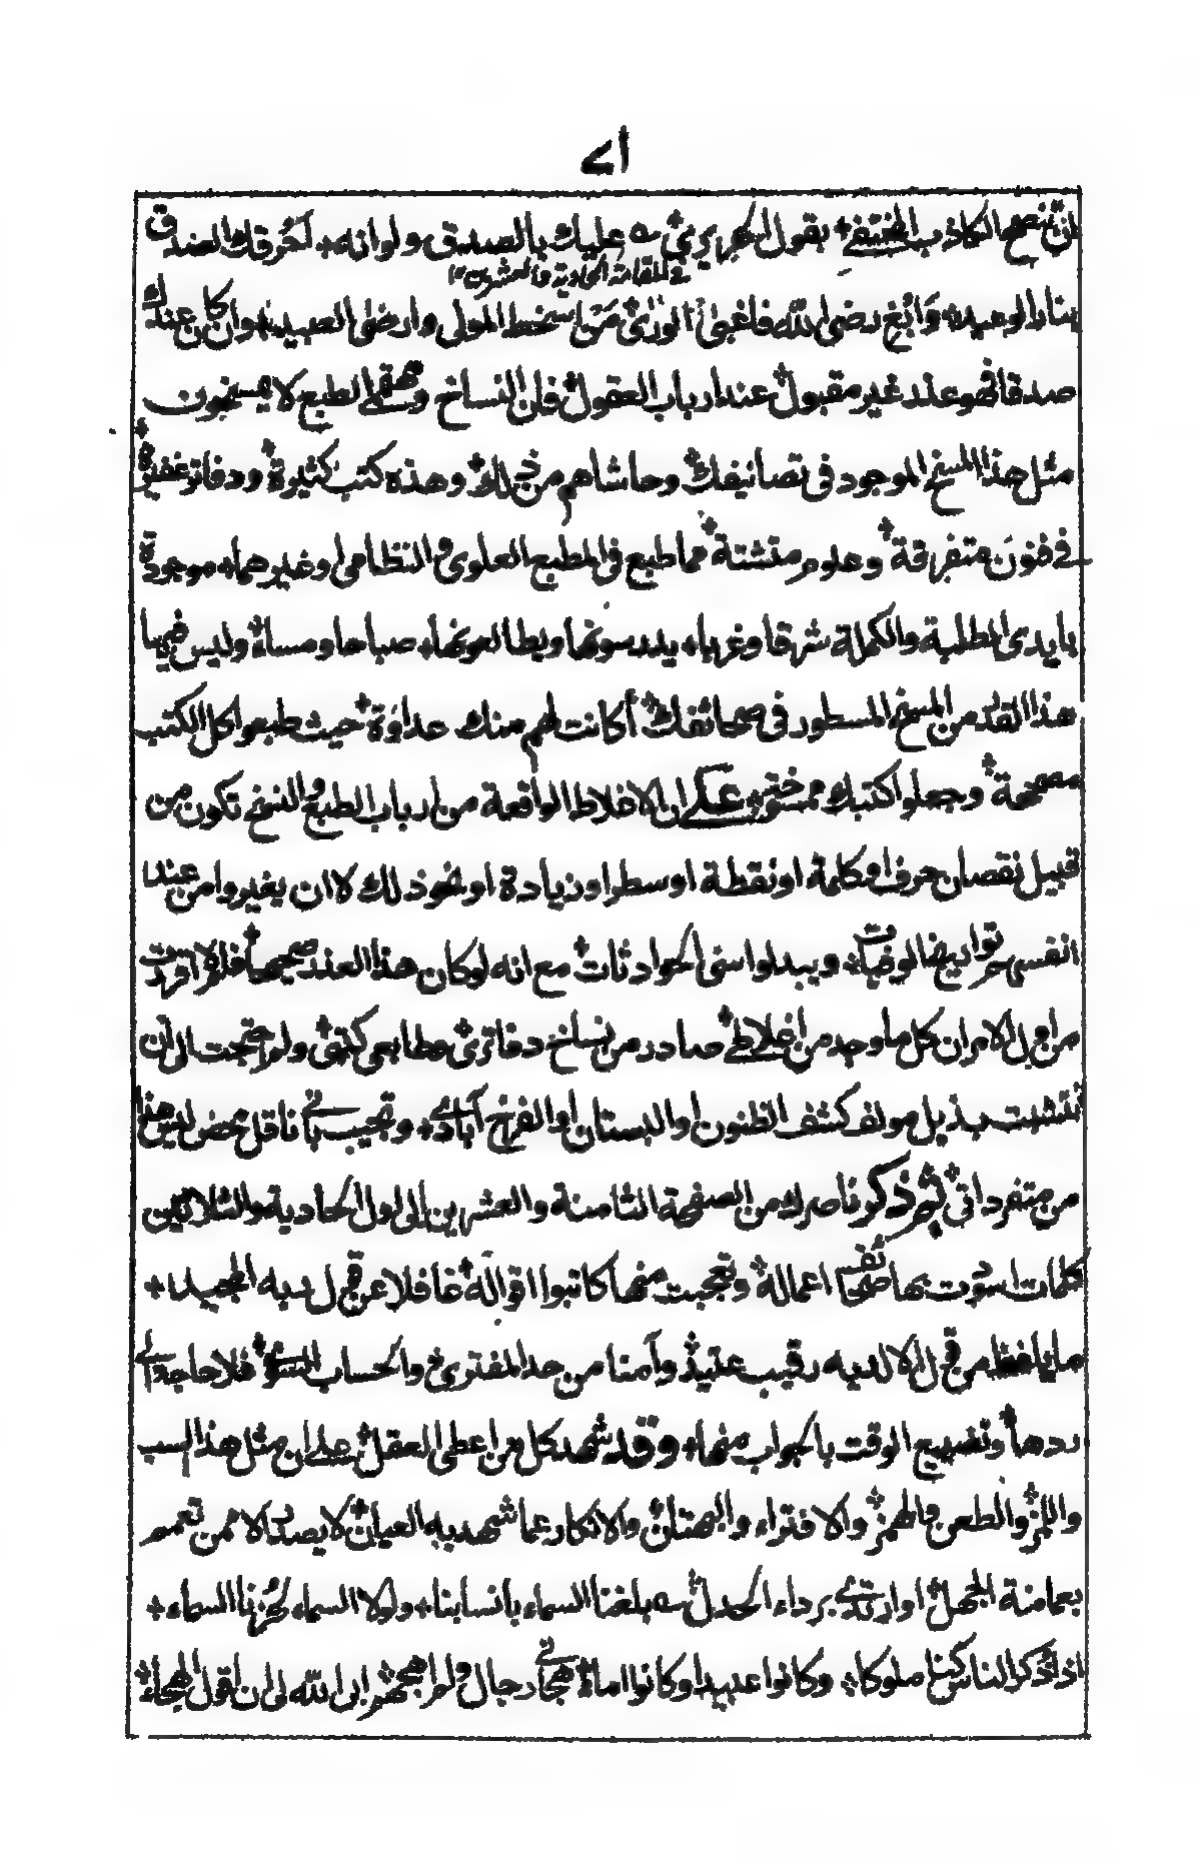 اے
ان ينصح الكاذب المختفي بقول الحريري ے عليك بالصدق ولو انه + احرقك الصدق
في المقامة الحادية والعشرين ١٢
بنار الوعيد + وابغ رضى الله فاغبى الورى + من اسخط المولى وارضى العبيد + وان كان عندك
صدقا فهو عند غير مقبول عند ارباب العقول فان النساخ ومصححي الطبع لا يمسخون
مثل هذا المسخ الموجود في تصانيفك وحاشاهم من ذلك وهذه كتب كثيرة ودفاتر غفيرة
في فنون متفرقة وعلوم متشتة مما طبع في المطبع العلوي والنظامي وغيرهما + موجودة
بايدي الطلبة والكملة شرقا وغربا + يدرسونها ويطالعونها + صباحا ومساء وليس فيها
هذا القدر من المسخ المسطور في صحائفك أكانت لهم منك عداوة حيث طبعوا كل الكتب
مصححة وجعلوا كتبك ممسوخة + على ان الاغلاط الواقعة من ارباب الطبع والنسخ تكون من
قبيل نقصان حرف او كلمة او نقطة او سطر او زيادة او نحو ذلك لا ان يغيروا من عند
انفسهم تواريخ الوفيات + ويبدلوا سني الحوادثات مع انه لو كان هذا العذر صحيحا فلم لا اقررت
من اول الامر ان كل ما وجد من اغلاطي صادر من نساخ دفاتري مطابعي كتبي ولم احتجت الى ان
تشبثت بذيل مولف كشف الظنون او البستان او الفرخ آبادي + وتجيب باني ناقل محض ليس هذا
من متفرداتي ثم ذكر ناصرك من الصفحة الثامنة والعشرين الى اول الحادية والثلاثين
كلمات اسودت بها صحائف اعماله وتعجبت منها كاتبوا اقواله غافلا عن قول ربه المجيد +
ما يلفظ من قول الا لديه رقيب عتيد وآمنا من حد المفتري والحساب السوء فلا حاجة الى
ردها وتضييع الوقت بالجواب منها + وقد شهد كل من اعطي العقل على ان مثل هذا السب
واللمز والطعن والهمز والافتراء والبهتان والانكار عما شهد به العيان لا يصدر الا ممن تعمم
بعمامة الجهل او ارتدى برداء الجدل ے بلغنا السماء بانسابنا + ولولا السماء لجزنا السماء +
اذا ذكر الناس كنا ملوكا + وكانوا عبيدا وكانوا اماء هجاني رجال ولم اهجهم + ابى الله لي ان اقول الهجاء